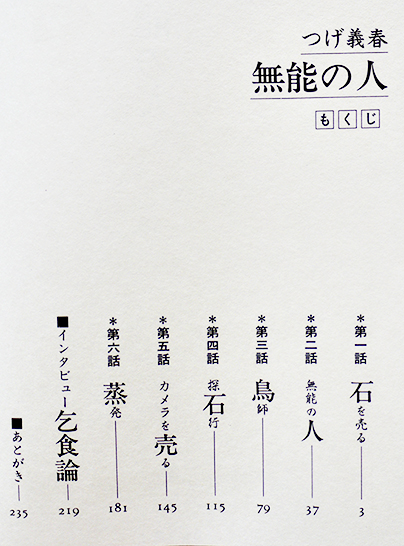 つげ義春
無能の人
もくじ
＊第一話 石を売る 3
＊第二話 無能の人 37
＊第三話 鳥師 79
＊第四話 探石行 115
＊第五話 カメラを売る 145
＊第六話 蒸発 181
■インタビュー 乞食論 219
■あとがき 235